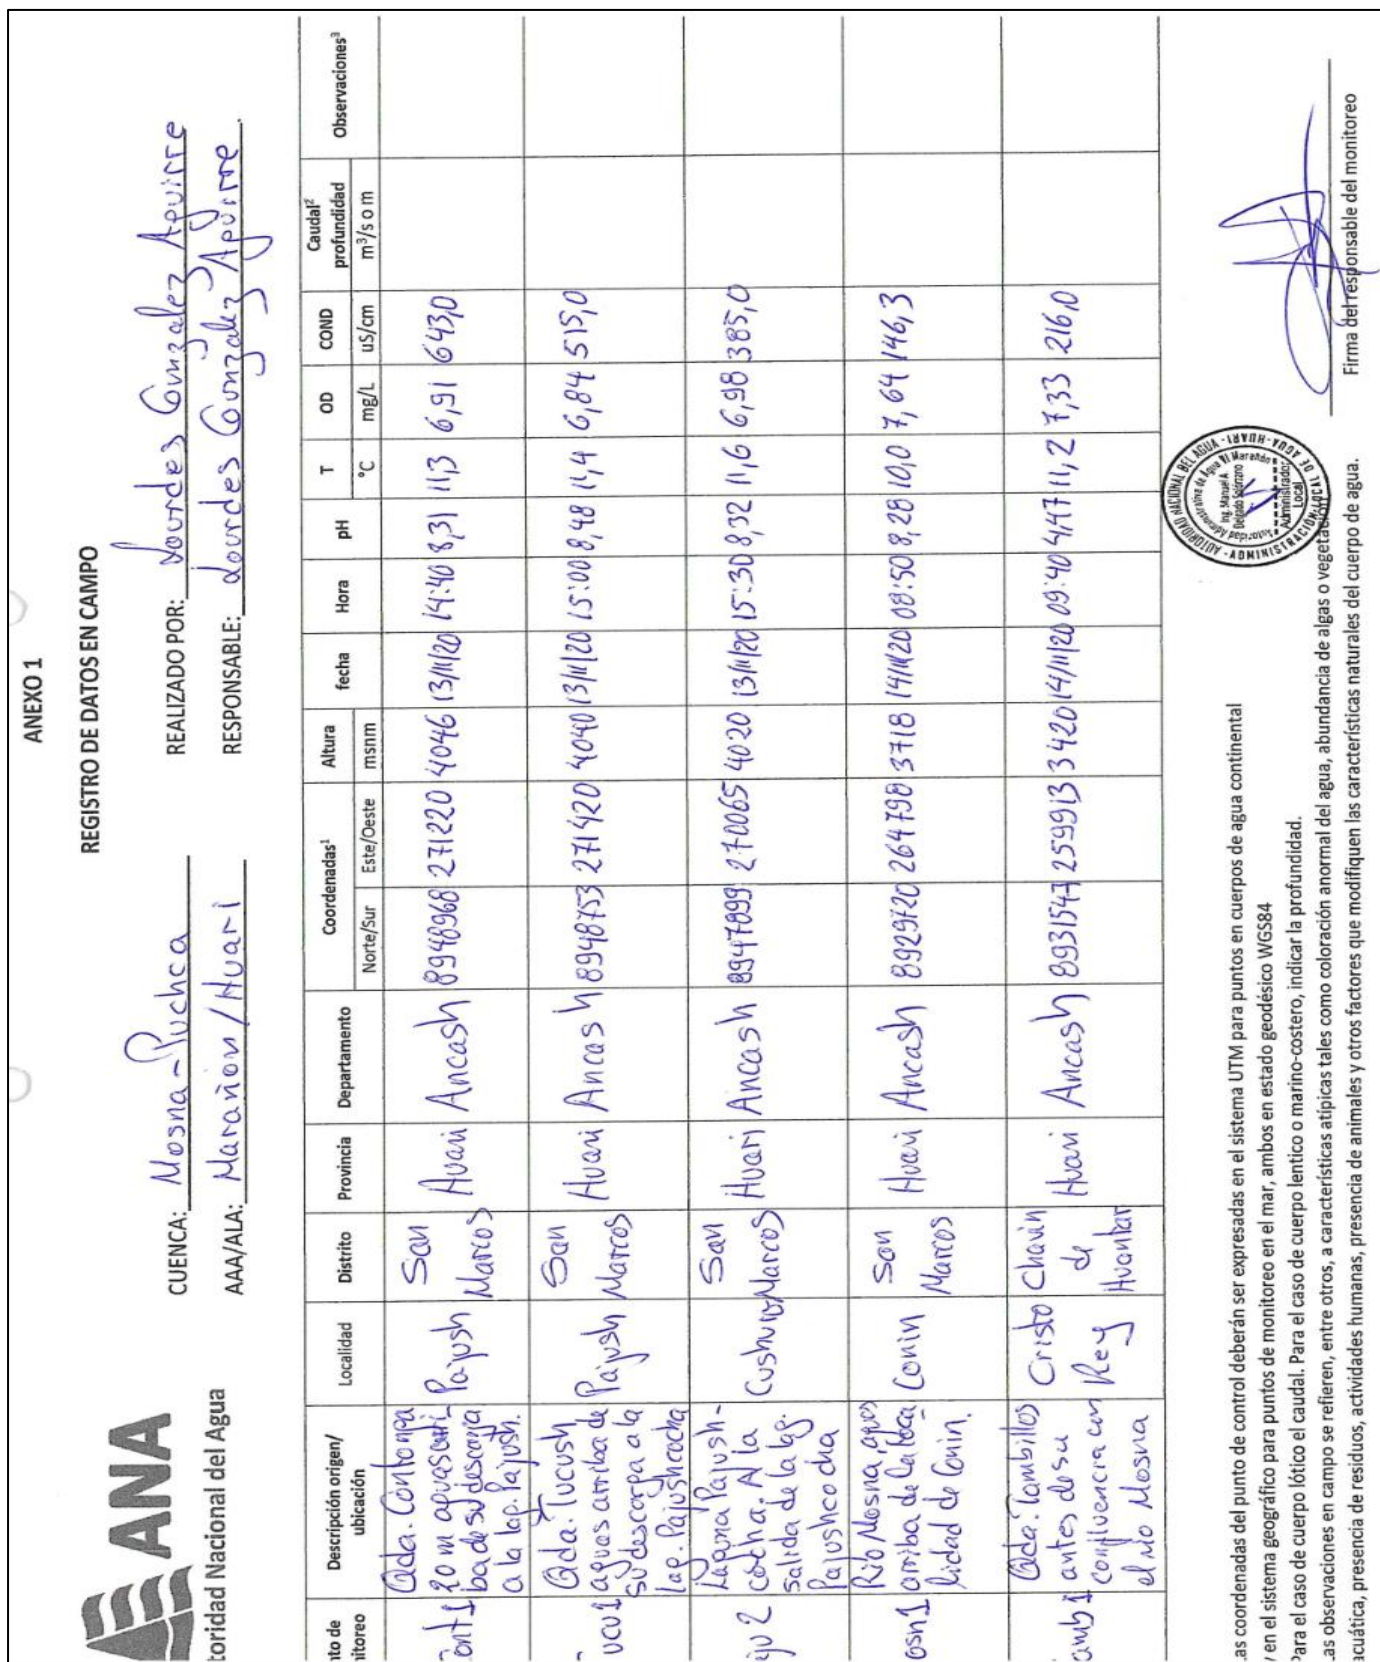 ANEXO 1
REGISTRO DE DATOS EN CAMPO
ANA
toridad Nacional del Agua
CUENCA: Mosna-Puchca
REALIZADO POR: Lourdes Gonzalez Aguirre
AAA/ALA: Marañon / Huari
RESPONSABLE: Lourdes Gonzalez Aguirre
nto de
itoreo
Descripción origen/
ubicación
Localidad
Distrito
Provincia
Departamento
Coordenadas¹
Norte/Sur
Este/Oeste
Altura
msnm
fecha
Hora
pH
T
°C
OD
mg/L
COND
uS/cm
Caudal²
profundidad
m³/s o m
Observaciones³
Cont1
Qda. Contonga
20 m aguas arri-
ba de su descarga
a la lag. Pajush.
Pajush
San
Marcos
Huari
Ancash
8948968
271220
4046
13/11/20
14:40
8,31
11,3
6,91
643,0
ucu1
Qda. Tucush
aguas arriba de
su descarga a la
lag. Pajushcocha
Pajush
San
Marcos
Huari
Ancash
8948753
271420
4040
13/11/20
15:00
8,48
11,4
6,84
515,0
aju2
Laguna Pajush-
cocha, A la
salida de la lag.
Pajushcocha
Cushuro
San
Marcos
Huari
Ancash
8947899
270065
4020
13/11/20
15:30
8,32
11,6
6,98
385,0
osn1
Río Mosna, aguas
arriba de la loca
lidad de Conin.
Conin
San
Marcos
Huari
Ancash
8929720
264798
3718
14/11/20
08:50
8,28
10,0
7,64
146,3
amb1
Qda. Tambillos
antes de su
confluencia con
el río Mosna
Cristo
Rey
Chavin
de
Huantar
Huari
Ancash
8931547
259913
3420
14/11/20
09:40
4,47
11,2
7,33
216,0
as coordenadas del punto de control deberán ser expresadas en el sistema UTM para puntos en cuerpos de agua continental
y en el sistema geográfico para puntos de monitoreo en el mar, ambos en estado geodésico WGS84
Para el caso de cuerpo lótico el caudal. Para el caso de cuerpo lentico o marino-costero, indicar la profundidad.
as observaciones en campo se refieren, entre otros, a características atípicas tales como coloración anormal del agua, abundancia de algas o vegetación
acuática, presencia de residuos, actividades humanas, presencia de animales y otros factores que modifiquen las características naturales del cuerpo de agua.
AUTORIDAD NACIONAL DEL AGUA
ADMINISTRACIÓN LOCAL DE AGUA - HUARI
Autoridad Administrativa de Agua VI Marañón
Ing. Manuel A.
Delgado Solórzano
Administrador
Local
Firma del responsable del monitoreo